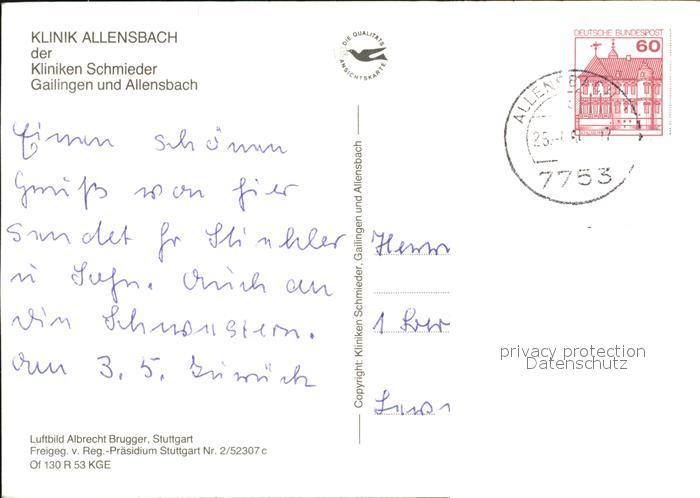 KLINIK ALLENSBACH
der
Kliniken Schmieder
Gailingen und Allensbach
DIE QUALITÄTS
ANSICHTSKARTE
DEUTSCHE BUNDESPOST
60
ALLENSBA
7753
Einen schönen
Gruß von hier
sendet Fr
u Sohn. Auch an
die Schwestern.
am 3. 5. zurück
Copyright: Kliniken Schmieder, Gailingen und Allensbach
Herrn
1 Ber
privacy protection
Datenschutz
Luftbild Albrecht Brugger, Stuttgart
Freigeg. v. Reg.-Präsidium Stuttgart Nr. 2/52307 c
Of 130 R 53 KGE